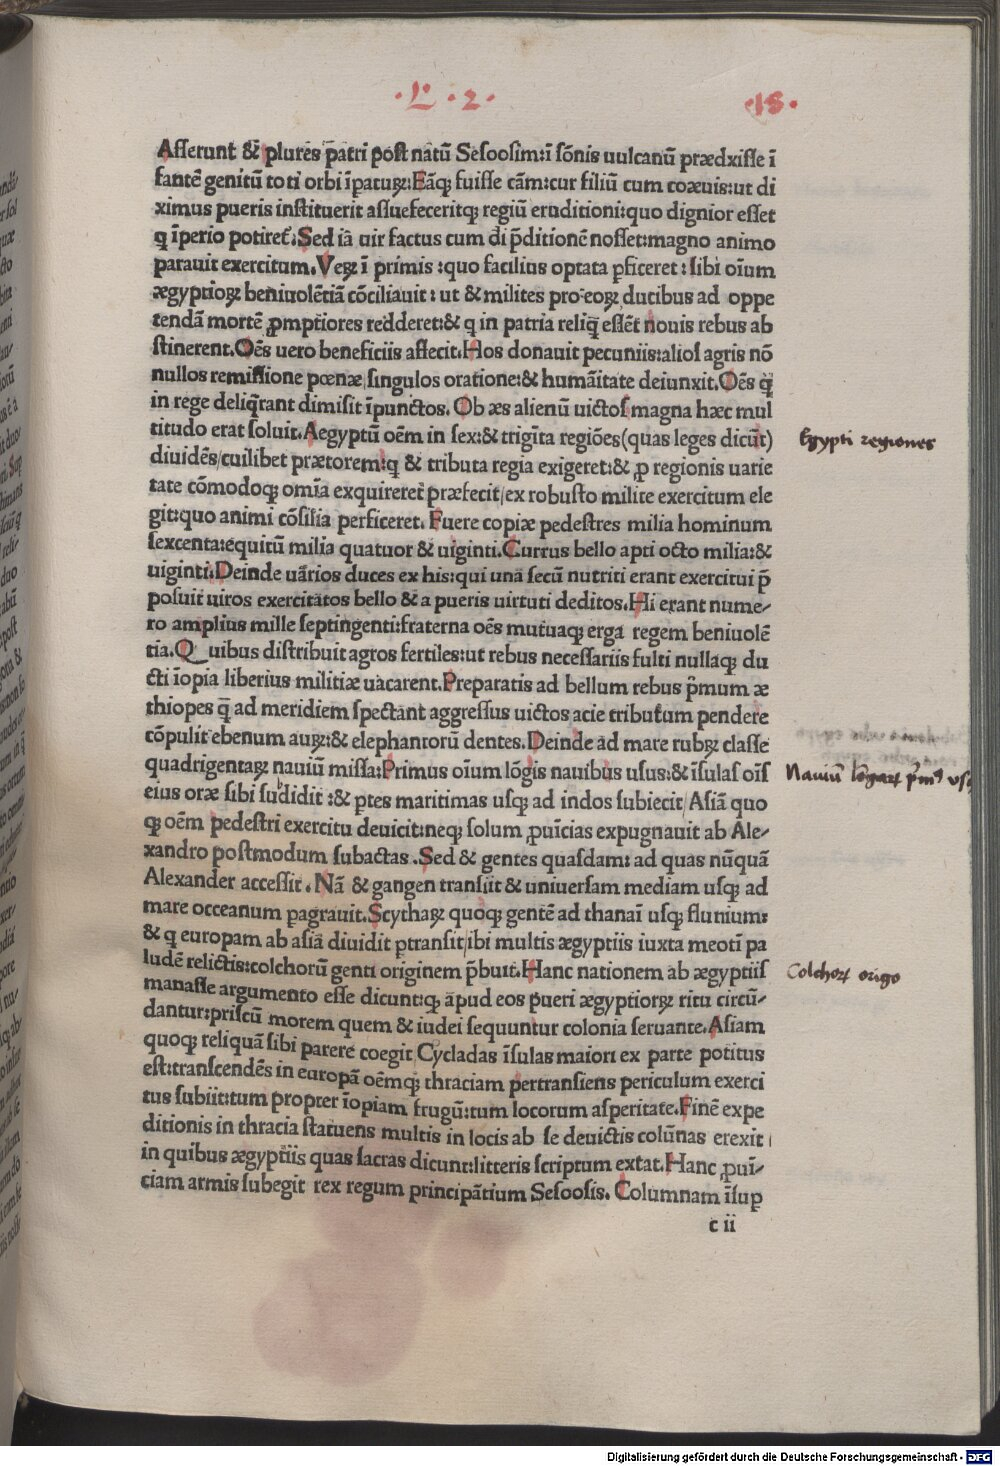 ·L·2·
·15·
Asserunt & plures p̄atri post natū Sesoosim:ī sōnis uulcanū prædxisse ī
fantē genitū toti orbi īpatuꝝ:Eāq; fuisse cām:cur filiū cum coæuis:ut di
ximus pueris instituerit assuefeceritq; regiū eruditioni:quo dignior esset
q īperio potiret̄.Sed iā uir factus cum di p̄ditionē nosset:magno animo
parauit exercitum.Veꝝ ī primis :quo facilius optata ꝑficeret : sibi oīum
ægyptioꝝ beniuolētiā cōciliauit : ut & milites pro eoꝝ ducibus ad oppe
tendā mortē ꝓmptiores redderet:& q in patria reliq̄ essēt nouis rebus ab
stinerent.Oēs uero beneficiis affecit.Hos donauit pecuniis:alios agris nō
nullos remissione pœnæ/singulos oratione:& humāitate deiunxit.Oēs q̄
in rege deliq̄rant dimisit īpunctos. Ob æs alienū uictos magna hæc mul
titudo erat soluit.Aegyptū oēm in sex:& trigīta regiōes(quas leges dicūt)
diuidēs/cuilibet prætorem:q & tributa regia exigeret:& ꝓ regionis uarie
tate cōmodoq; omīa exquireret præfecit/ex robusto milite exercitum ele
git:quo animi cōsilia perficeret. Fuere copiæ pedestres milia hominum
sexcenta:equitū milia quatuor & uiginti.Currus bello apti octo milia:&
uiginti.Deinde uārios duces ex his:qui una secū nutriti erant exercitui p̄
posuit uiros exercitatos bello & a pueris uirtuti deditos.Hi erant nume/
ro amplius mille septingenti:fraterna oēs mutuaq; erga regem beniuolē
tia.Quibus distribuit agros fertiles:ut rebus necessariis fulti nullaq; du
cti īopia liberius militiæ uacarent.Preparatis ad bellum rebus p̄mum æ
thiopes q̄ ad meridiem spectant aggressus uictos acie tributum pendere
cōpulit ebenum auꝝ:& elephantorū dentes.Deinde ad mare rubꝝ classe
quadrigentaꝝ nauiū missa:Primus oīum lōgis nauibus usus:& īsulas oīs
eius oræ sibi sudidit :& ꝑtes maritimas usq; ad indos subiecit/Asiā quo
q; oēm pedestri exercitu deuicit:neq; solum ꝓuīcias expugnauit ab Ale/
xandro postmodum subactas .Sed & gentes quasdam: ad quas nūquā
Alexander accessit . Nā & gangen transiit & uniuersam mediam usq; ad
mare occeanum pagrauit.Scythaꝝ quoq; gentē ad thanaī usq; fluuium:
& q europam ab asiā diuidit ꝑtransit/ibi multis ægyptiis iuxta meoti pa
ludē relictis:colchorū genti originem p̄buit.Hanc nationem ab ægyptiis
manasse argumento esse dicunt:q; apud eos pueri ægyptioꝝ ritu circū/
dantur:priscū morem quem & iudei sequuntur colonia seruante.Asiam
quoq; reliquā sibi parere coegit/Cycladas īsulas maiori ex parte potitus
est:transcendēs in europā oēmq; thraciam pertransiens periculum exerci
tus subiit:tum propter īopiam frugū:tum locorum asperitate.Finē expe
ditionis in thracia statuens multis in locis ab se deuictis colūnas erexit
in quibus ægyptiis quas sacras dicunt:litteris scriptum extat.Hanc ꝓuī/
ciam armis subegit rex regum principātium Sesoosis. Columnam īsuꝑ
c ii
Egypti regiones
Nauiū lōgarꝝ p̄mus us
Colchorꝝ origo
Digitalisierung gefördert durch die Deutsche Forschungsgemeinschaft - DFG